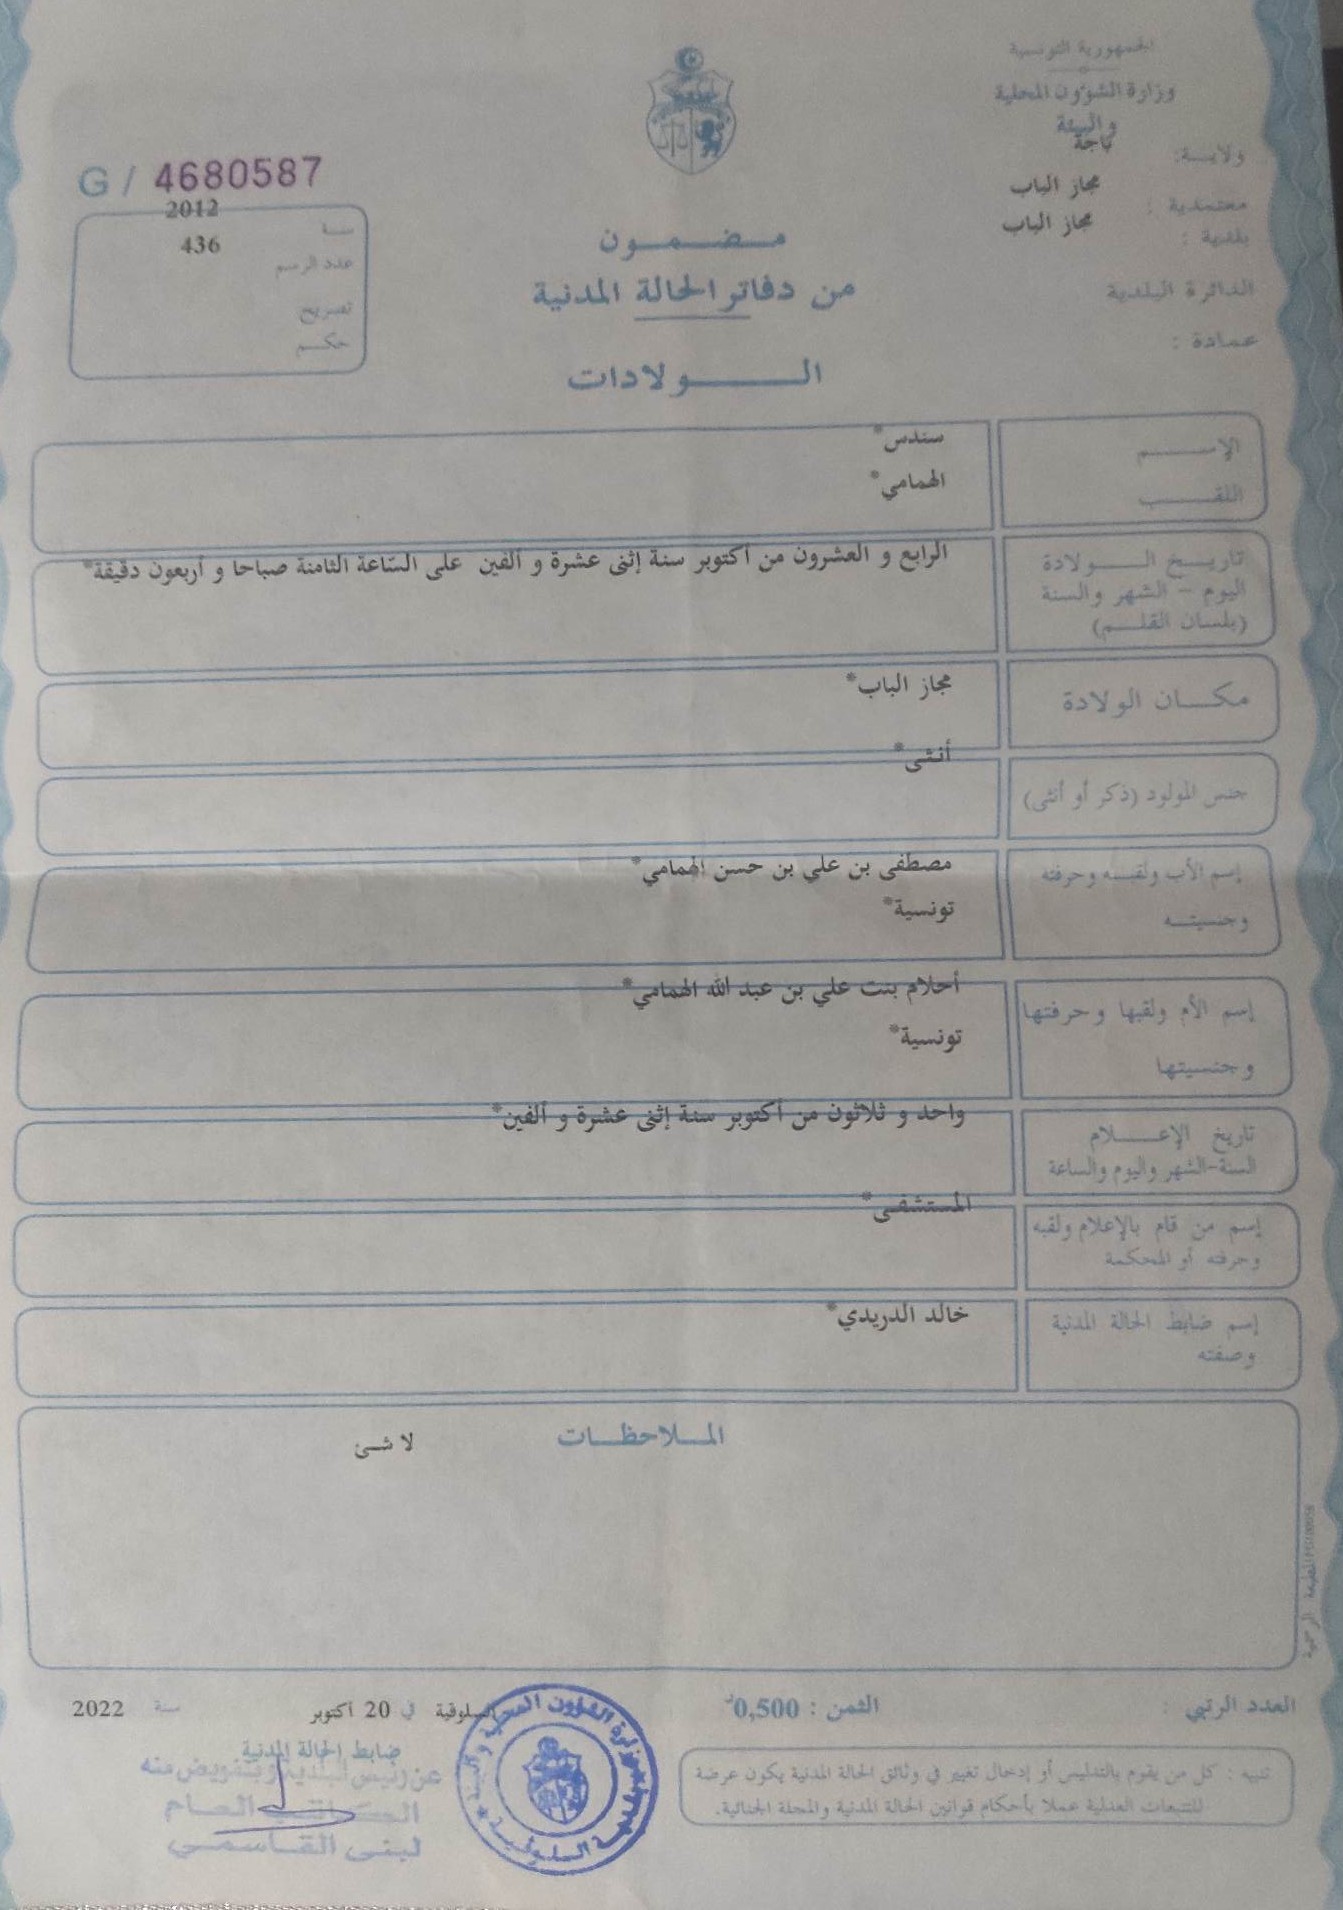 الجمهورية التونسية
وزارة الشؤون المحلية
والبيئة
ولايــة: باجة
معتمدية : مجاز الباب
بلدية : مجاز الباب
الدائرة البلدية
عمادة :
G / 4680587
سنة 2012
عدد الرسم 436
تصريح
حكـم
مـضـمـون
من دفاتر الحالة المدنية
الـولادات
الإســم سندس*
اللقــب الهمامي*
تاريـخ الـولادة
اليوم - الشهر والسنة
(بلسان القلـم)
الرابع و العشرون من أكتوبر سنة إثنى عشرة و ألفين على السّاعة الثامنة صباحا و أربعون دقيقة*
مكـان الولادة مجاز الباب*
جنس المولود (ذكر أو أنثى) أنثى*
إسم الأب ولقبـه وحرفته مصطفى بن علي بن حسن الهمامي*
وجنسيتـه تونسية*
إسم الأم ولقبها وحرفتها أحلام بنت علي بن عبد الله الهمامي*
وجنسيتها تونسية*
تاريخ الإعـلام واحد و ثلاثون من أكتوبر سنة إثنى عشرة و ألفين*
السنة-الشهر واليوم والساعة
إسم من قام بالإعلام ولقبه المستشفـى*
وحرفته أو المحكمة
إسم ضابط الحالة المدنية خالد الدريدي*
وصفته
المـلاحظـات
لا شـئ
العدد الرتبي :
الثمن : 0,500د
السلوقية في 20 أكتوبر سنة 2022
ضابط الحالة المدنية
عن رئيس البلدية وبتفويض منه
الكاتب العام
لبنى القاسمي
تنبيه : كل من يقوم بالتدليس أو إدخال تغيير في وثائق الحالة المدنية يكون عرضة
للتتبعات العدلية عملا بأحكام قوانين الحالة المدنية والمجلة الجنائية.
وزارة الشؤون المحلية والبيئة
بلدية السلوقية
المطبعة الرسمية